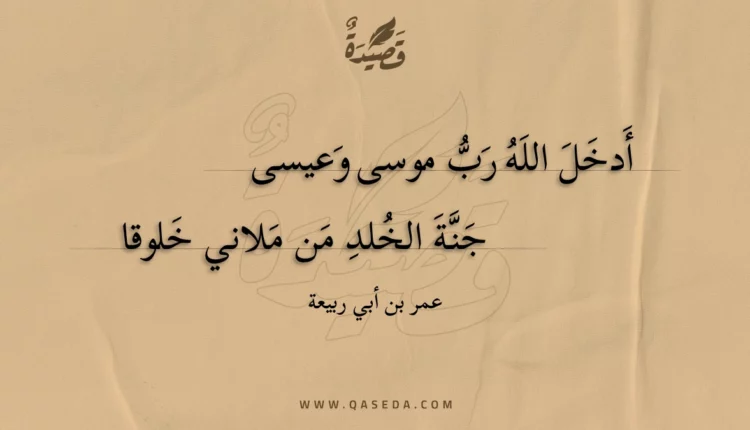 قَصِيْدَةٌ
أَدخَلَ اللَهُ رَبُّ موسى وَعيسى
جَنَّةَ الخُلدِ مَن مَلاني خَلوقا
عمر بن أبي ربيعة
WWW.QASEDA.COM